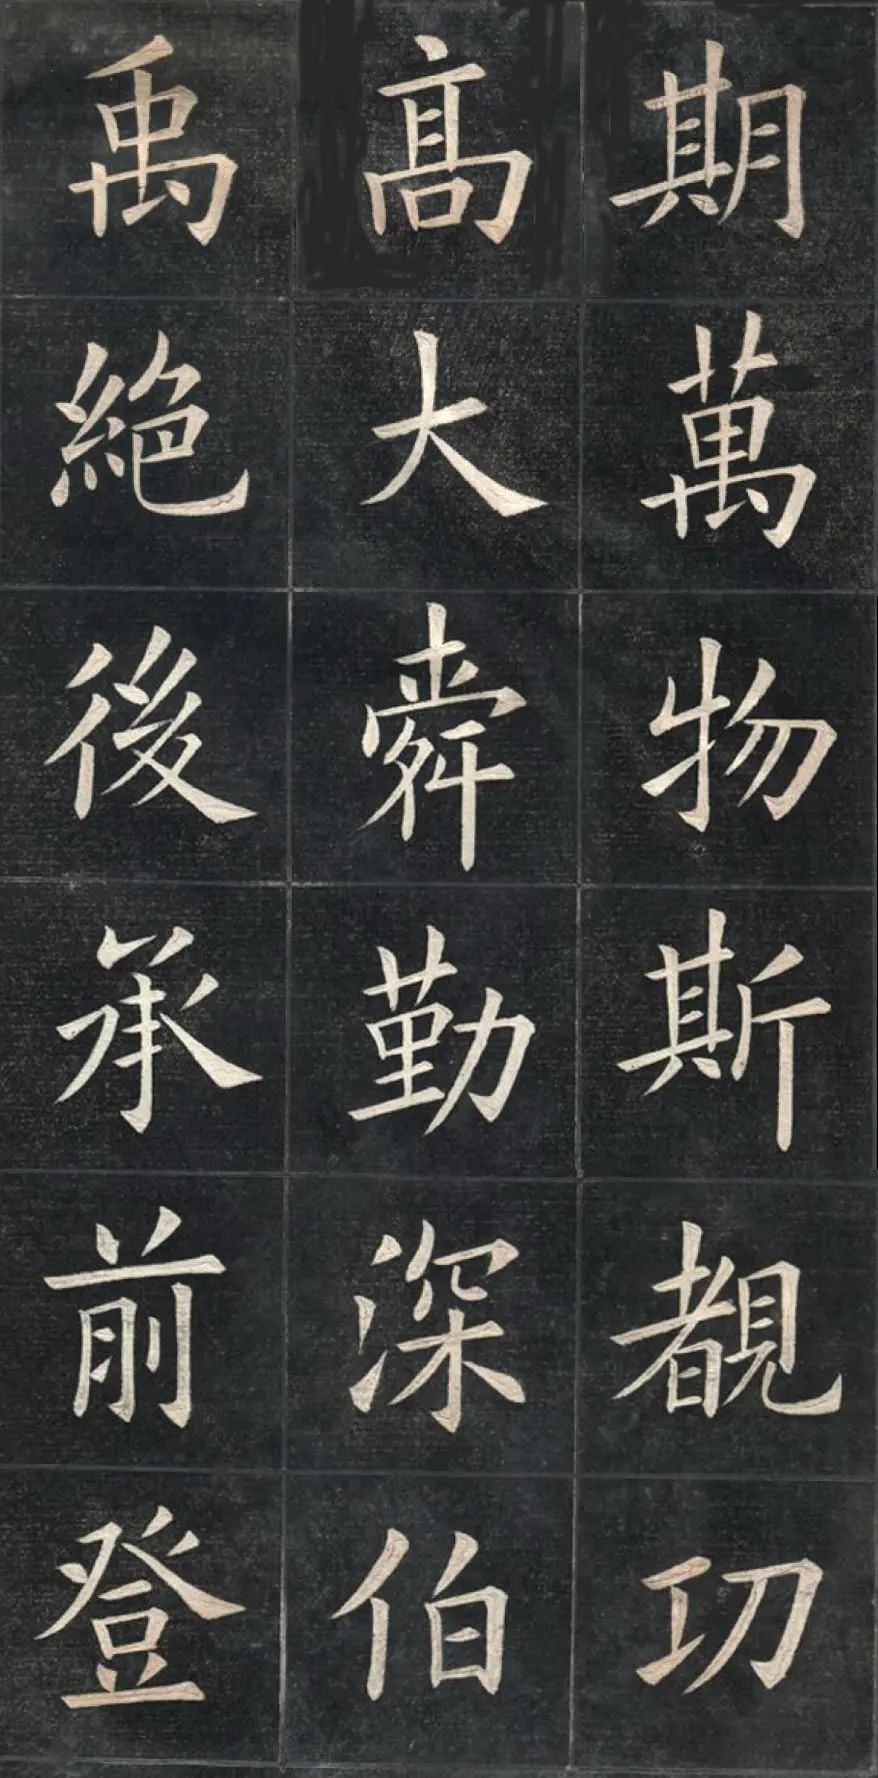 期萬物斯覩㓛
髙大舜勤深伯
禹絶後承前登